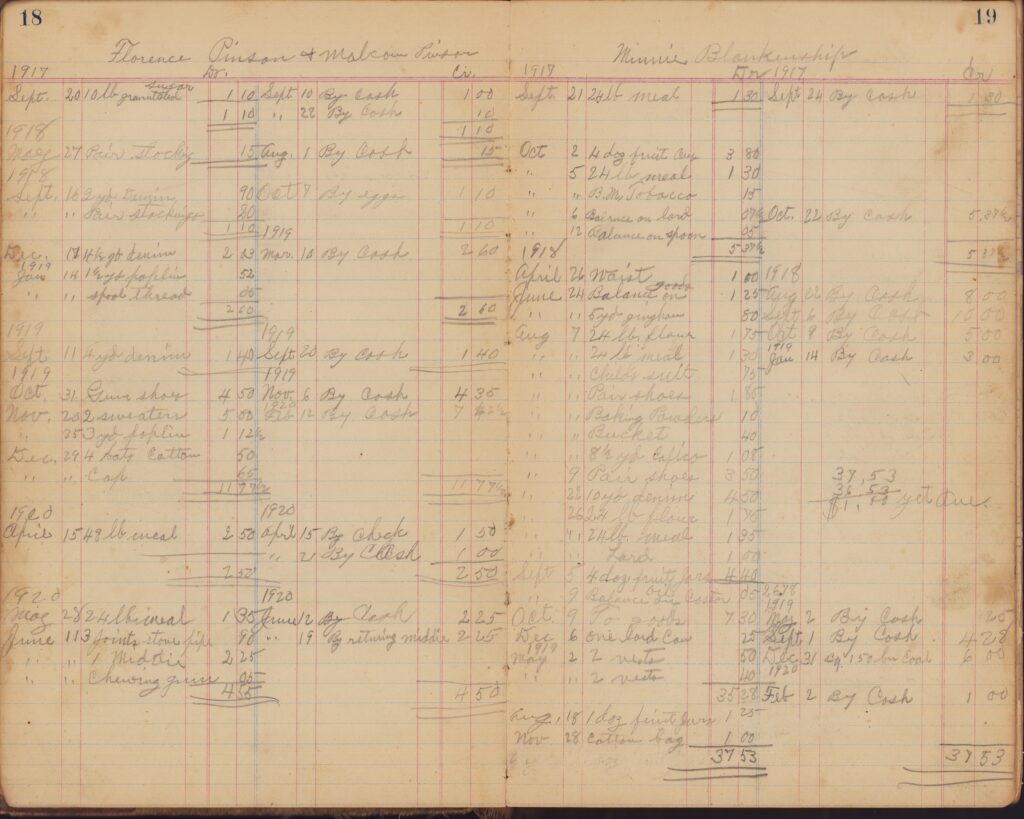 18
Florence Pinson & Malcom Pinson
1917 Dr. Cr.
Sept. 20 10 lb granulated sugar 1 10 Sept 10 By Cash 1 00
1 10 " 22 By Cash 10
1 10
1918
May 27 Pair stockig 15 Aug. 1 By Cash 15
1918
Sept. 16 2 yd Denim 90 Oct 7 By eggs 1 10
" " Pair stockings 20
1 10 1 10
1919
Dec. 17 4½ yd denim 2 03 Mar. 10 By Cash 2 60
1919
Jan 14 1½ yd poplin 52
" " spool thread 05
2 60 2 60
1919 1919
Sept 11 4 yd denim 1 40 Sept 20 By Cash 1 40
1919 1919
Oct. 31 Gum shoes 4 50 Nov. 6 By Cash 4 35
1920
Nov. 20 2 sweaters 5 00 Feb 12 By Cash 7 42½
" 25 3 yd poplin 1 12½
Dec. 29 4 bats Cotton 50
" " Cap 65
11 77½ 11 77½
1920 1920
April 15 48 lb meal 2 50 April 15 By Check 1 50
" 21 By Cash 1 00
2 50 2 50
1920 1920
May 28 24 lb meal 1 35 June 12 By Cash 2 25
June 11 3 joints stove pipe 90 " 19 By returning middie 2 25
" " 1 Middie 2 25
" " Chewing gum 05
4 55 4 50
19
Minnie Blankenship
1917 Dr 1917 Cr
Sept. 21 24 lb meal 1 30 Sept 24 By Cash 1 30
Oct 2 4 doz fruit 3 80
" 5 24 lb meal 1 30
" " B.M. Tobacco 15
" 6 Balance on lard 07½ Oct. 22 By Cash 5,37½
" 12 Balance on spoon 05
1918 5 37½ 5 37½
April 26 Waist 1 00 1918
June 24 Balance on goods 1 25 Aug 22 By Cash 8 00
" " 5 yd gingham 80 Sept 6 By Cash 10 00
Aug 7 24 lb. flour 1 75 Oct 9 By Cash 5 00
1919
" " 24 lb meal 1 30 Jan 14 By Cash 3 00
" " Child's suit 75
" " Pair shoes 1 85
" " Baking Powders 10
" " Bucket 40
" " 8½ yd Calico 1 08
" 9 Pair shoes 3 50 37,53
" 22 10 yd denim 4 50 36 53
$1,00 yet due.
" 26 24 lb flour 1 75
" " 24 lb. meal 1 35
" " Lard 1 00
Sept 5 4 doz fruit jars 4 40
" 9 Balance on Castor 05
1919
Oct. 9 To goods 7 30 May 2 By Cash 25
Dec 6 one lard Can 25 Sept 1 By Cash 4 28
1919
May 2 2 vests 50 Dec 31 By 50 bu Coal 6 00
" " 2 vests 40 1920
35 28 Feb 2 By Cash 1 00
Aug, 18 1 doz fruit jars 1 25
Nov 28 Cotton bag 1 00
37 53 37 53